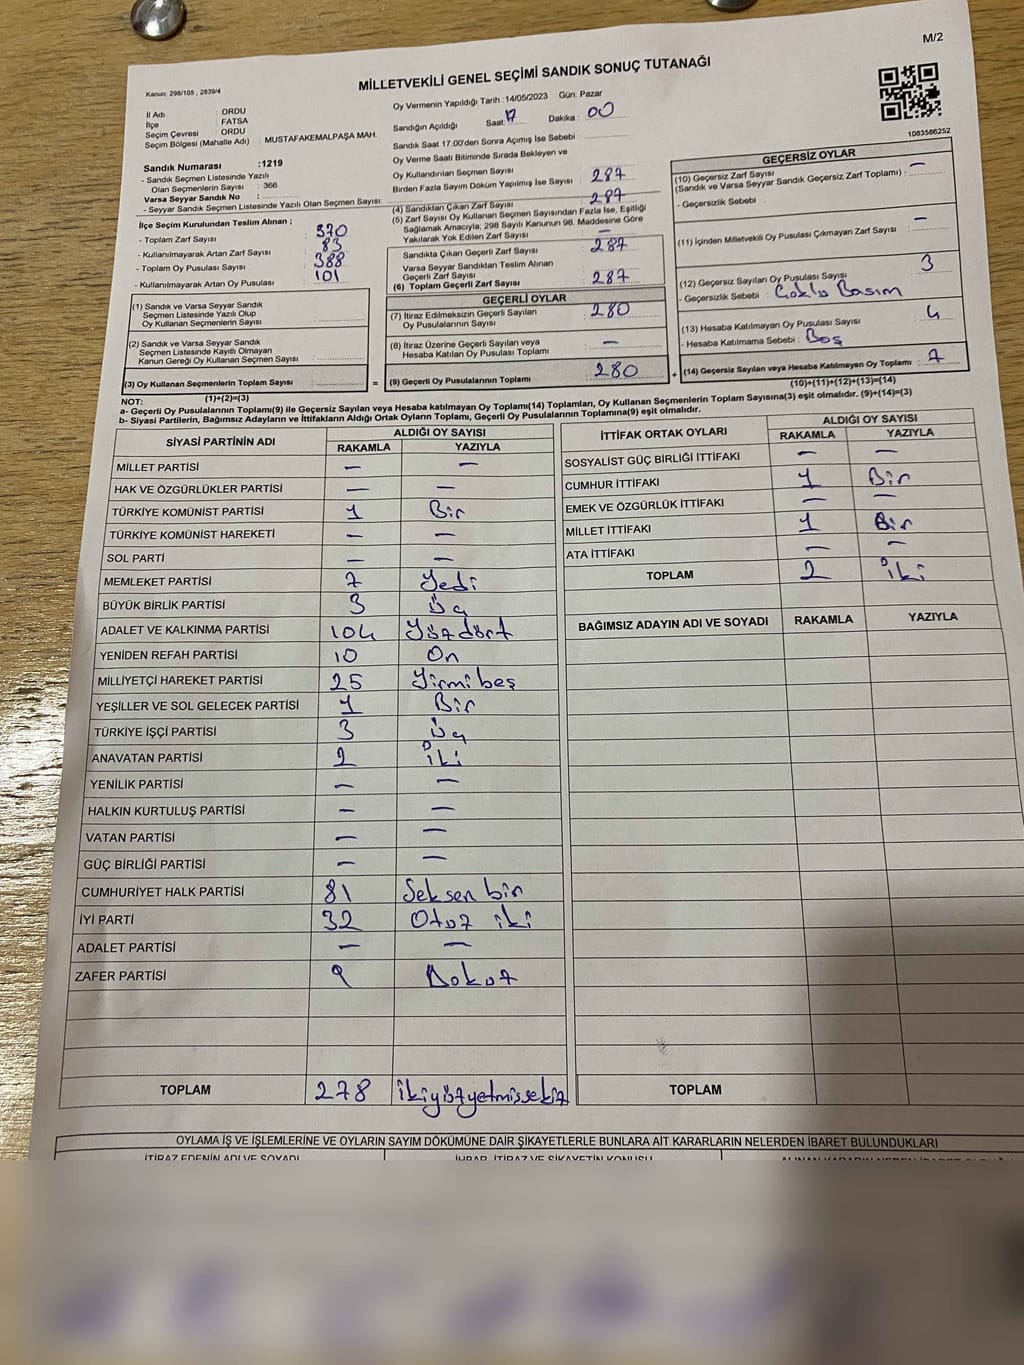 M/2
MİLLETVEKİLİ GENEL SEÇİMİ SANDIK SONUÇ TUTANAĞI
Kanun: 298/105 , 2839/4
İl Adı : ORDU
İlçe : FATSA
Seçim Çevresi : ORDU
Seçim Bölgesi (Mahalle Adı) : MUSTAFAKEMALPAŞA MAH.
Sandık Numarası :1219
- Sandık Seçmen Listesinde Yazılı
Olan Seçmenlerin Sayısı : 366
Varsa Seyyar Sandık No :
- Seyyar Sandık Seçmen Listesinde Yazılı Olan Seçmen Sayısı:
İlçe Seçim Kurulundan Teslim Alınan ;
- Toplam Zarf Sayısı 370
- Kullanılmayarak Artan Zarf Sayısı 83
- Toplam Oy Pusulası Sayısı 388
- Kullanılmayarak Artan Oy Pusulası 101
(1) Sandık ve Varsa Seyyar Sandık
Seçmen Listesinde Yazılı Olup
Oy Kullanan Seçmenlerin Sayısı :
(2) Sandık ve Varsa Seyyar Sandık
Seçmen Listesinde Kayıtlı Olmayan
Kanun Gereği Oy Kullanan Seçmen Sayısı :
(3) Oy Kullanan Seçmenlerin Toplam Sayısı : =
(1)+(2)=(3)
Oy Vermenin Yapıldığı Tarih : 14/05/2023 Gün: Pazar
Sandığın Açıldığı Saat: 17 Dakika : 00
Sandık Saat 17.00'den Sonra Açımış İse Sebebi :
Oy Verme Saati Bitiminde Sırada Bekleyen ve
Oy Kullandırılan Seçmen Sayısı
Birden Fazla Sayım Döküm Yapılmış İse Sayısı : 287
(4) Sandıktan Çıkan Zarf Sayısı 287
(5) Zarf Sayısı Oy Kullanan Seçmen Sayısından Fazla İse, Eşitliği
Sağlamak Amacıyla, 298 Sayılı Kanunun 98. Maddesine Göre
Yakılarak Yok Edilen Zarf Sayısı —
Sandıkta Çıkan Geçerli Zarf Sayısı 287
Varsa Seyyar Sandıktan Teslim Alınan
Geçerli Zarf Sayısı
(6) Toplam Geçerli Zarf Sayısı : 287
GEÇERLİ OYLAR
(7) İtiraz Edilmeksizin Geçerli Sayılan
Oy Pusulalarının Sayısı : 280
(8) İtiraz Üzerine Geçerli Sayılan veya
Hesaba Katılan Oy Pusulası Toplamı : —
(9) Geçerli Oy Pusulalarının Toplamı : 280 +
1083586252
GEÇERSİZ OYLAR
(10) Geçersiz Zarf Sayısı —
(Sandık ve Varsa Seyyar Sandık Geçersiz Zarf Toplamı) :
- Geçersizlik Sebebi :
(11) İçinden Milletvekili Oy Pusulası Çıkmayan Zarf Sayısı : —
(12) Geçersiz Sayılan Oy Pusulası Sayısı 3
- Geçersizlik Sebebi : Çoklu Basım
(13) Hesaba Katılmayan Oy Pusulası Sayısı : 4
- Hesaba Katılmama Sebebi : Boş
(14) Geçersiz Sayılan veya Hesaba Katılmayan Oy Toplamı : 7
(10)+(11)+(12)+(13)=(14)
NOT:
a- Geçerli Oy Pusulalarının Toplamı(9) ile Geçersiz Sayılan veya Hesaba katılmayan Oy Toplamı(14) Toplamları, Oy Kullanan Seçmenlerin Toplam Sayısına(3) eşit olmalıdır. (9)+(14)=(3)
b- Siyasi Partilerin, Bağımsız Adayların ve İttifakların Aldığı Ortak Oyların Toplamı, Geçerli Oy Pusulalarının Toplamına(9) eşit olmalıdır.
SİYASİ PARTİNİN ADI ALDIĞI OY SAYISI
RAKAMLA YAZIYLA
MİLLET PARTİSİ — —
HAK VE ÖZGÜRLÜKLER PARTİSİ — —
TÜRKİYE KOMÜNİST PARTİSİ 1 Bir
TÜRKİYE KOMÜNİST HAREKETİ — —
SOL PARTİ — —
MEMLEKET PARTİSİ 7 Yedi
BÜYÜK BİRLİK PARTİSİ 3 Üç
ADALET VE KALKINMA PARTİSİ 104 Yüzdört
YENİDEN REFAH PARTİSİ 10 On
MİLLİYETÇİ HAREKET PARTİSİ 25 Yirmi beş
YEŞİLLER VE SOL GELECEK PARTİSİ 1 Bir
TÜRKİYE İŞÇİ PARTİSİ 3 Üç
ANAVATAN PARTİSİ 2 İki
YENİLİK PARTİSİ — —
HALKIN KURTULUŞ PARTİSİ — —
VATAN PARTİSİ — —
GÜÇ BİRLİĞİ PARTİSİ — —
CUMHURİYET HALK PARTİSİ 81 Seksen bir
İYİ PARTİ 32 Otuz iki
ADALET PARTİSİ — —
ZAFER PARTİSİ 9 Dokuz
TOPLAM 278 ikiyüzyetmişsekiz
İTTİFAK ORTAK OYLARI ALDIĞI OY SAYISI
RAKAMLA YAZIYLA
SOSYALİST GÜÇ BİRLİĞİ İTTİFAKI — —
CUMHUR İTTİFAKI 1 Bir
EMEK VE ÖZGÜRLÜK İTTİFAKI — —
MİLLET İTTİFAKI 1 Bir
ATA İTTİFAKI — —
TOPLAM 2 İki
BAĞIMSIZ ADAYIN ADI VE SOYADI RAKAMLA YAZIYLA
TOPLAM
OYLAMA İŞ VE İŞLEMLERİNE VE OYLARIN SAYIM DÖKÜMÜNE DAİR ŞİKAYETLERLE BUNLARA AİT KARARLARIN NELERDEN İBARET BULUNDUKLARI
İTİRAZ EDENİN ADI VE SOYADI İHBAR, İTİRAZ VE ŞİKAYETİN KONUSU